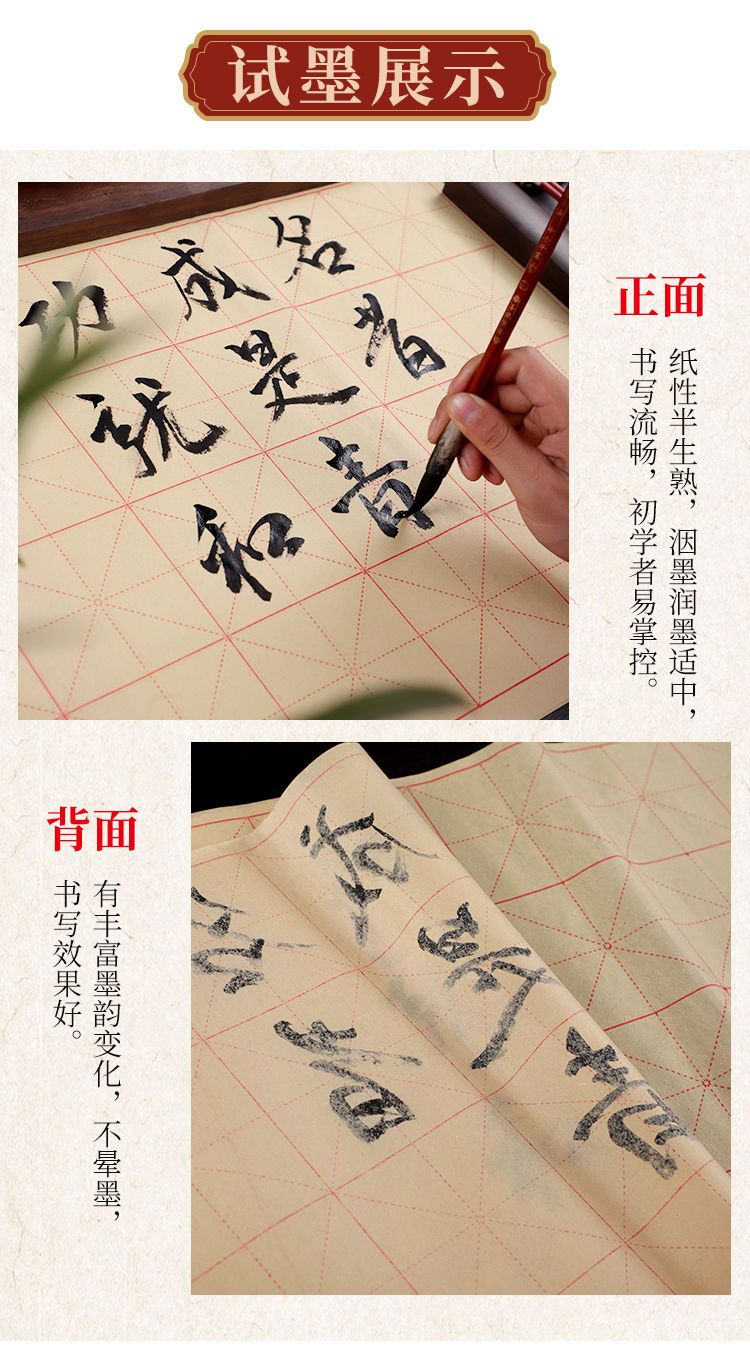 试墨展示
正面
纸性半生熟，洇墨润墨适中，
书写流畅，初学者易掌控。
功成名
就是
和
背面
有丰富墨韵变化，不晕墨，
书写效果好。